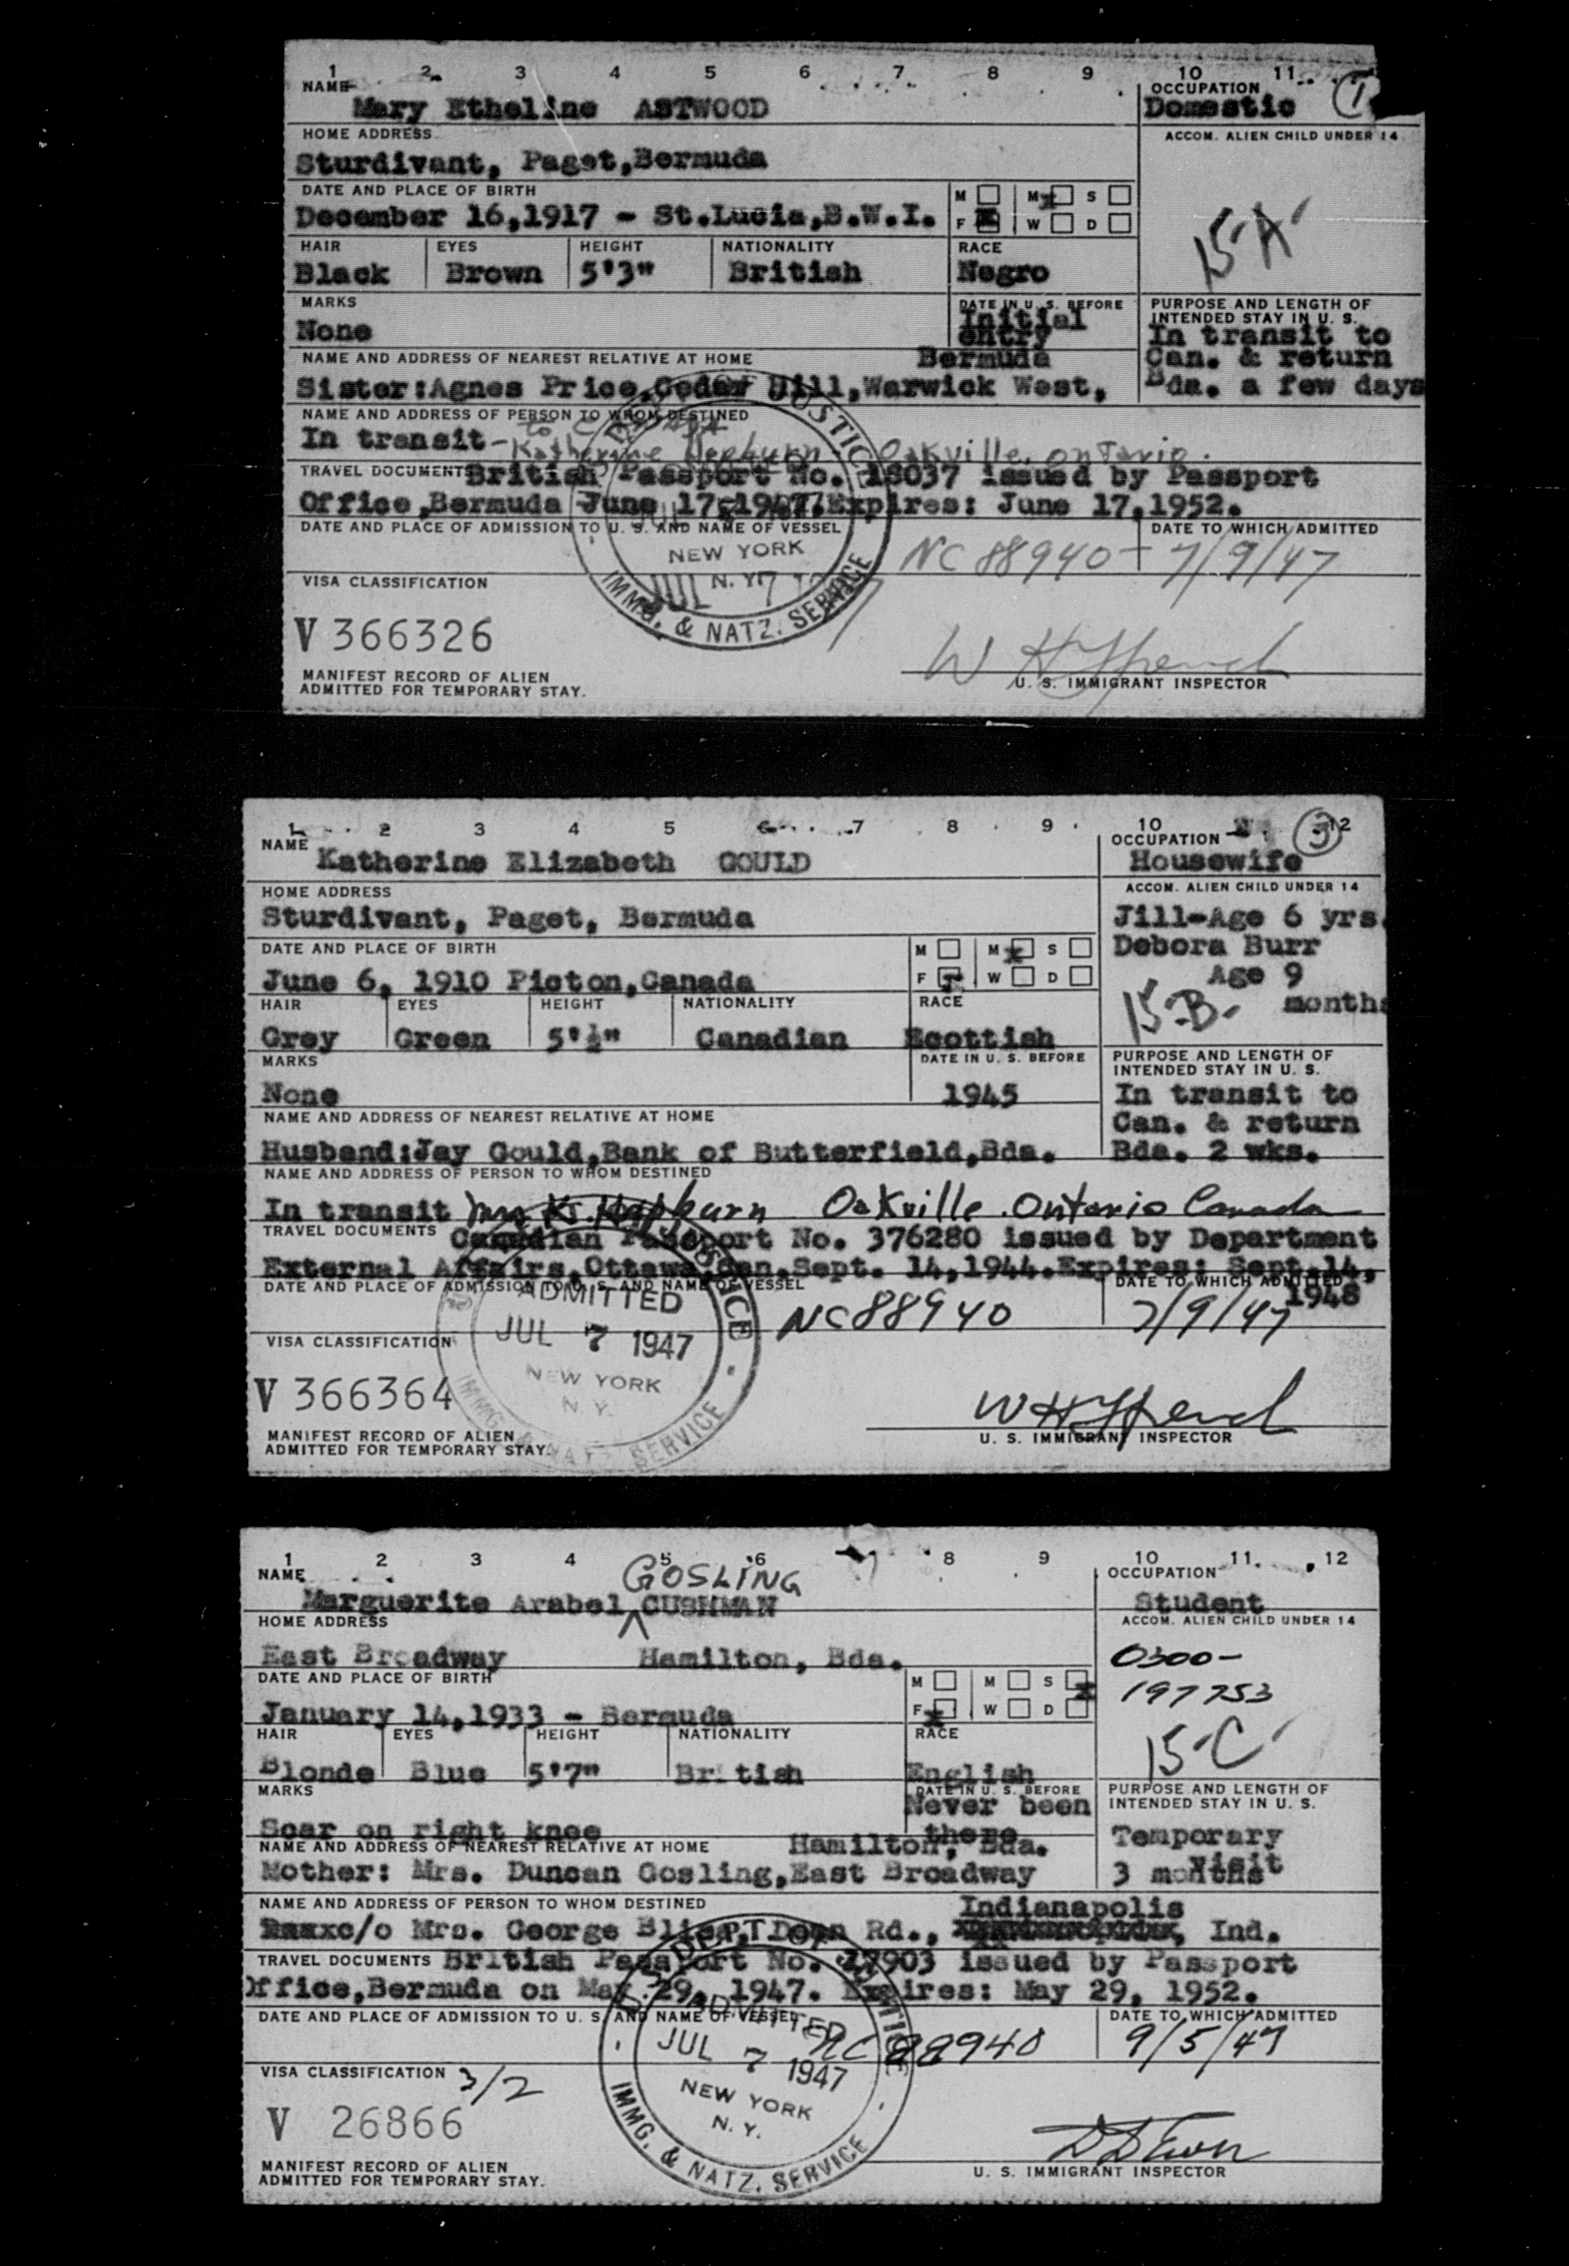 1 2 3 4 5 6 7 8 9 10 11
NAME OCCUPATION
Mary Etheline ASTWOOD Domestic 1
HOME ADDRESS ACCOM. ALIEN CHILD UNDER 14
Sturdivant, Paget,Bermuda
DATE AND PLACE OF BIRTH M M S
December 16,1917 - St.Lucia,B.W.I. F W D
15-A-
HAIR EYES HEIGHT NATIONALITY RACE
Black Brown 5'3" British Negro
MARKS DATE IN U. S. BEFORE PURPOSE AND LENGTH OF
INTENDED STAY IN U. S.
None Initial entry In transit to
NAME AND ADDRESS OF NEAREST RELATIVE AT HOME Bermuda Can. & return
Sister:Agnes Price,Cedar Hill,Warwick West, Bda. a few days
NAME AND ADDRESS OF PERSON TO WHOM DESTINED
In transit - Katherine Hepburn - Oakville, ontario.
TRAVEL DOCUMENTS British Passport No. 18037 issued by Passport
Office,Bermuda June 17,1947.Expires: June 17,1952.
DATE AND PLACE OF ADMISSION TO U. S. AND NAME OF VESSEL DATE TO WHICH ADMITTED
NEW YORK NC 88940 - 7/9/47
N. Y.
JUL 7
VISA CLASSIFICATION
IMMG. & NATZ. SERVICE
V 366326
W H Spend
MANIFEST RECORD OF ALIEN U. S. IMMIGRANT INSPECTOR
ADMITTED FOR TEMPORARY STAY.
1 2 3 4 5 6 7 8 9 10 12
NAME OCCUPATION 3
Katherine Elizabeth GOULD Housewife
HOME ADDRESS ACCOM. ALIEN CHILD UNDER 14
Sturdivant, Paget, Bermuda Jill-Age 6 yrs.
DATE AND PLACE OF BIRTH M M S Debora Burr
June 6, 1910 Picton,Canada F W D Age 9
months
15-B-
HAIR EYES HEIGHT NATIONALITY RACE
Grey Green 5'½" Canadian Scottish
MARKS DATE IN U. S. BEFORE PURPOSE AND LENGTH OF
INTENDED STAY IN U. S.
None 1945 In transit to
NAME AND ADDRESS OF NEAREST RELATIVE AT HOME Can. & return
Husband:Jay Gould,Bank of Butterfield,Bda. Bda. 2 wks.
NAME AND ADDRESS OF PERSON TO WHOM DESTINED
In transit Mrs K. Hepburn Oakville. Ontario Canada
TRAVEL DOCUMENTS Canadian Passport No. 376280 issued by Department
External Affairs,Ottawa,Can.Sept. 14,1944.Expires: Sept.14,
1948
DATE AND PLACE OF ADMISSION TO U. S. AND NAME OF VESSEL DATE TO WHICH ADMITTED
ADMITTED NC88940 7/9/47
JUL 7 1947
VISA CLASSIFICATION
NEW YORK
N. Y.
IMMG. & NATZ. SERVICE
V 366364
W H Spend
MANIFEST RECORD OF ALIEN U. S. IMMIGRANT INSPECTOR
ADMITTED FOR TEMPORARY STAY.
1 2 3 4 5 6 7 8 9 10 11 12
NAME GOSLING OCCUPATION
Marguerite Arabel CUSHMAN Student
HOME ADDRESS ACCOM. ALIEN CHILD UNDER 14
East Broadway Hamilton, Bda. 0300-
197753
DATE AND PLACE OF BIRTH M M S
January 14,1933 - Bermuda F W D
15-C-
HAIR EYES HEIGHT NATIONALITY RACE
Blonde Blue 5'7" British English
MARKS DATE IN U. S. BEFORE PURPOSE AND LENGTH OF
INTENDED STAY IN U. S.
Scar on right knee Never been there Temporary visit
NAME AND ADDRESS OF NEAREST RELATIVE AT HOME Hamilton, Bda.
Mother: Mrs. Duncan Gosling,East Broadway 3 months
NAME AND ADDRESS OF PERSON TO WHOM DESTINED Indianapolis
c/o Mrs. George Rd., Ind.
TRAVEL DOCUMENTS British Passport No. 17903 issued by Passport
Office,Bermuda on May 29, 1947. Expires: May 29, 1952.
DATE AND PLACE OF ADMISSION TO U. S. AND NAME OF VESSEL DATE TO WHICH ADMITTED
ADMITTED NC 88940 9/5/47
JUL 7 1947
VISA CLASSIFICATION 3/2
NEW YORK
N. Y.
IMMG. & NATZ. SERVICE
V 26866
MANIFEST RECORD OF ALIEN U. S. IMMIGRANT INSPECTOR
ADMITTED FOR TEMPORARY STAY.